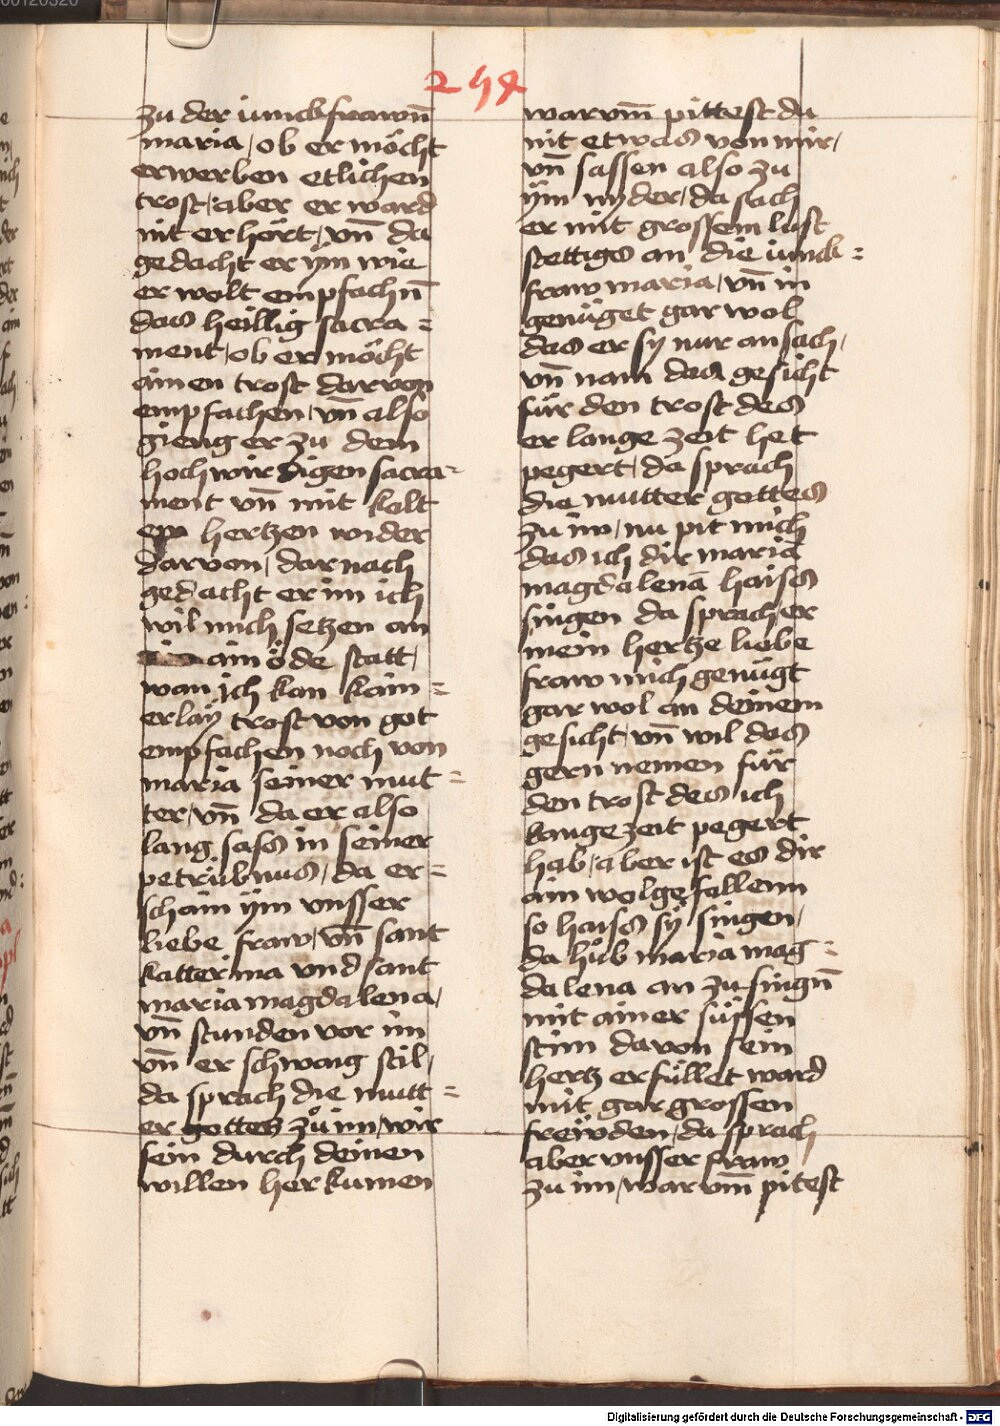 254
zu der iunckfrawn̄
maria, ob er möcht
erwerben etlichen
trost, aber er ward
nit erhört, vn̄ da
gedacht er ym wie
er wolt empfachn̄
das heillig sacra=
ment, ob er möcht
ainen trost darvon
empfachen, vn̄ also
gieng er zu dem
hochwirdigen sacra=
ment vn̄ mit kalt
em hertzen wider
darvon, dar nach
gedacht er im ich
wil mich setzen an
ain öde statt,
wan ich kan kain=
erlaÿ trost von got
empfachen noch von
maria seiner mut=
ter, vn̄ da er also
lang sass in seiner
petrübnus, da er=
schain ÿm vnsser
liebe fraw, vn̄ sant
katterina vnd sant
maria magdalena,
vn̄ stunden vor im
vn̄ er schwaig stil,
da sprach die mutt=
er gottes zů im, wir
sein durch deinen
willen her kumen
warvm̄ pittest du
nit etwas von mir,
vn̄ sassen also zu
ÿm nyder, da sach
er mit grossem lust
stettigs an die iunck=
fraw maria, vn̄ in
genüget gar wol
das er sy nur ansach,
vn̄ nam das gesicht
für den trost des
er lange zeit het
pegert, da sprach
die mutter gottes
zu im, nu pit mich
das ich dir maria
magdalena haiss
singen da sprach er
mein hertze liebe
fraw mich genügt
gar wol an deinem
gesicht, vn̄ wil das
gern nemen für
den trost des ich
lange zeit pegert
hab, aber ist es dir
ain wolgefallenn
so haiss sÿ singen,
da hůb maria mag=
dalena an zu singn̄
mit ainer süssen
stim davon sein
hertz erfüllet ward
mit gar grossen
freẅden, da sprach
aber vnsser fraw
zu im, warvm̄ pitest
00120320
Digitalisierung gefördert durch die Deutsche Forschungsgemeinschaft - DFG